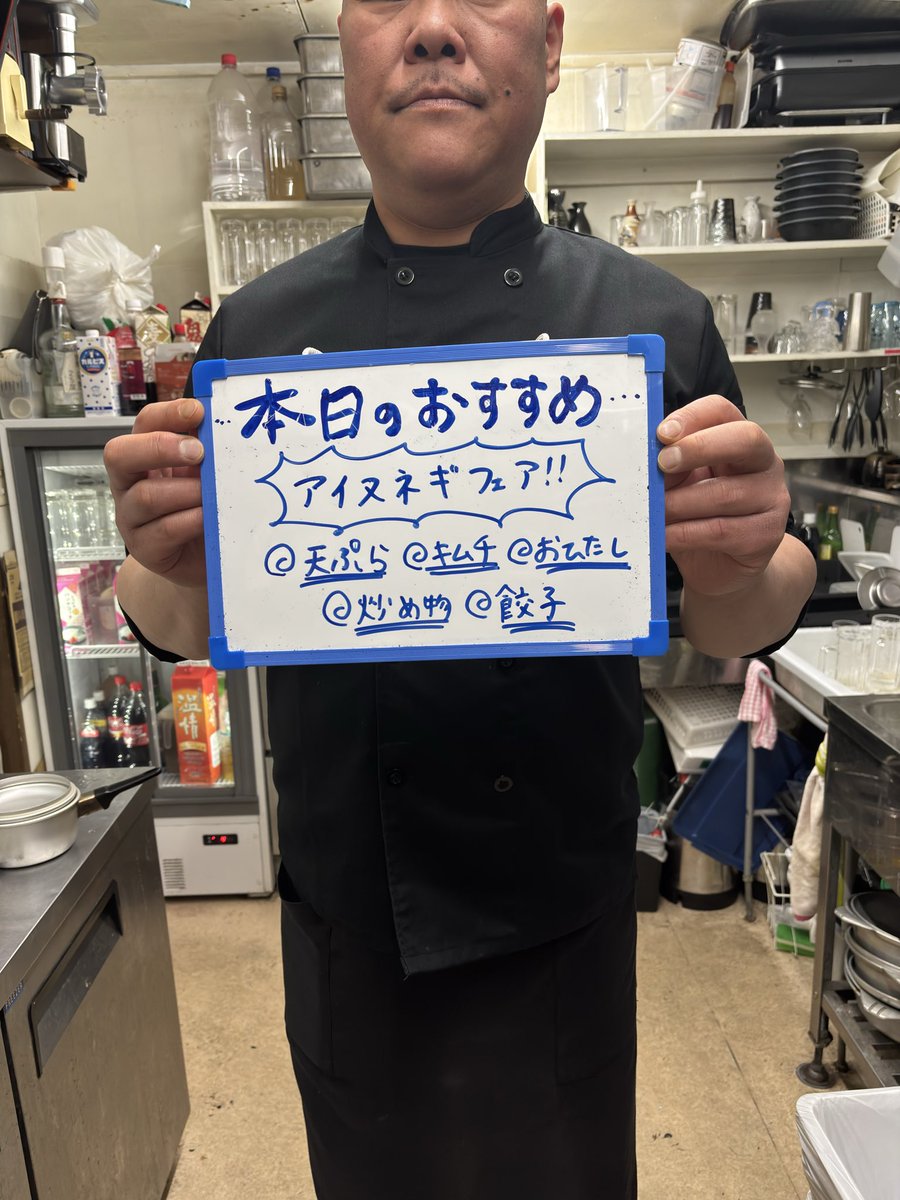 ‥本日のおすすめ…
アイヌネギフェア!!
@天ぷら @キムチ @おひたし
@炒め物 @餃子
カルピス
温情